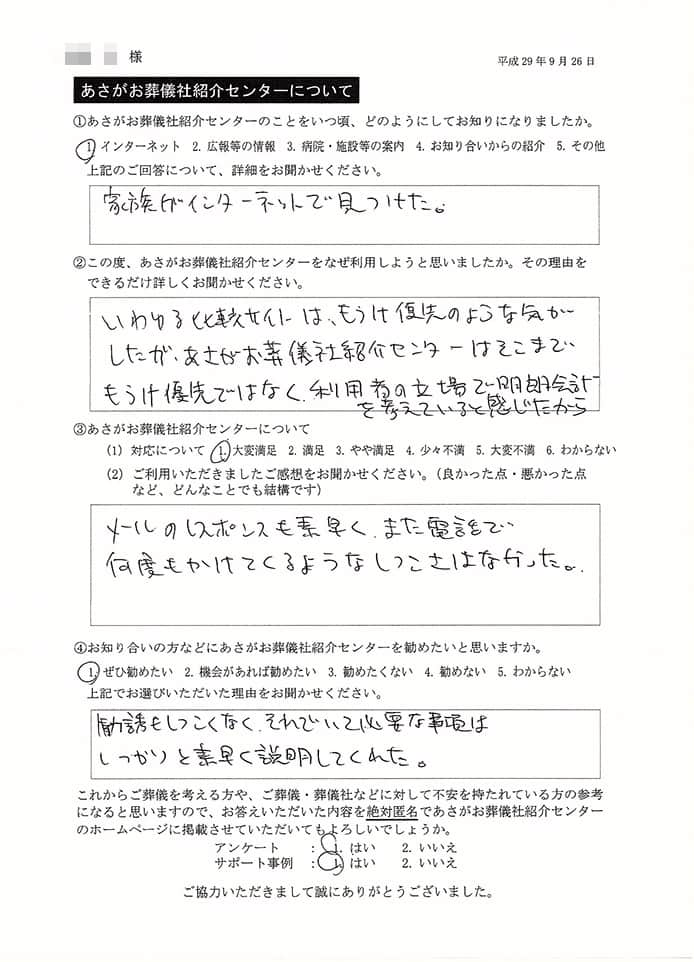 様
平成29年9月26日
あさがお葬儀社紹介センターについて
①あさがお葬儀社紹介センターのことをいつ頃、どのようにしてお知りになりましたか。
1. インターネット 2. 広報等の情報 3. 病院・施設等の案内 4. お知り合いからの紹介 5. その他
上記のご回答について、詳細をお聞かせください。
家族がインターネットで見つけた。
②この度、あさがお葬儀社紹介センターをなぜ利用しようと思いましたか。その理由を
できるだけ詳しくお聞かせください。
いわゆる比較サイトは、もうけ優先のような気が
したが、あさがお葬儀社紹介センターはそこまで
もうけ優先ではなく、利用者の立場で明朗会計
を考えていると感じたから
③あさがお葬儀社紹介センターについて
(1) 対応について 1. 大変満足 2. 満足 3. やや満足 4. 少々不満 5. 大変不満 6. わからない
(2) ご利用いただきましたご感想をお聞かせください。（良かった点・悪かった点
など、どんなことでも結構です）
メールのレスポンスも素早く、また電話で
何度もかけてくるようなしつこさはなかった。
④お知り合いの方などにあさがお葬儀社紹介センターを勧めたいと思いますか。
1. ぜひ勧めたい 2. 機会があれば勧めたい 3. 勧めたくない 4. 勧めない 5. わからない
上記でお選びいただいた理由をお聞かせください。
勧誘もしつこくなく、それでいて必要な事項は
しっかりと素早く説明してくれた。
これからご葬儀を考える方や、ご葬儀・葬儀社などに対して不安を持たれている方の参考
になると思いますので、お答えいただいた内容を絶対匿名であさがお葬儀社紹介センター
のホームページに掲載させていただいてもよろしいでしょうか。
アンケート : 1. はい 2. いいえ
サポート事例 : 1. はい 2. いいえ
ご協力いただきまして誠にありがとうございました。